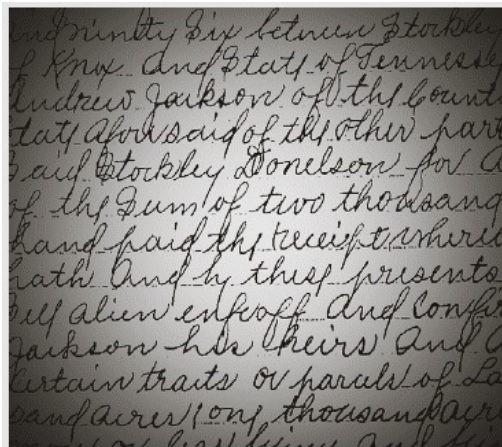 and ninety Six between Stockley
of Knox and State of Tennessee
Andrew Jackson of the Count
State aforesaid of the other part
Said Stockley Donelson for a
of the Sum of two thousand
hand paid the receipt where
hath and by these presents
Sell alien enfeoff and Confir
Jackson his heirs and
Certain traits or parcels of La
sand acres one thousand acr
more or less